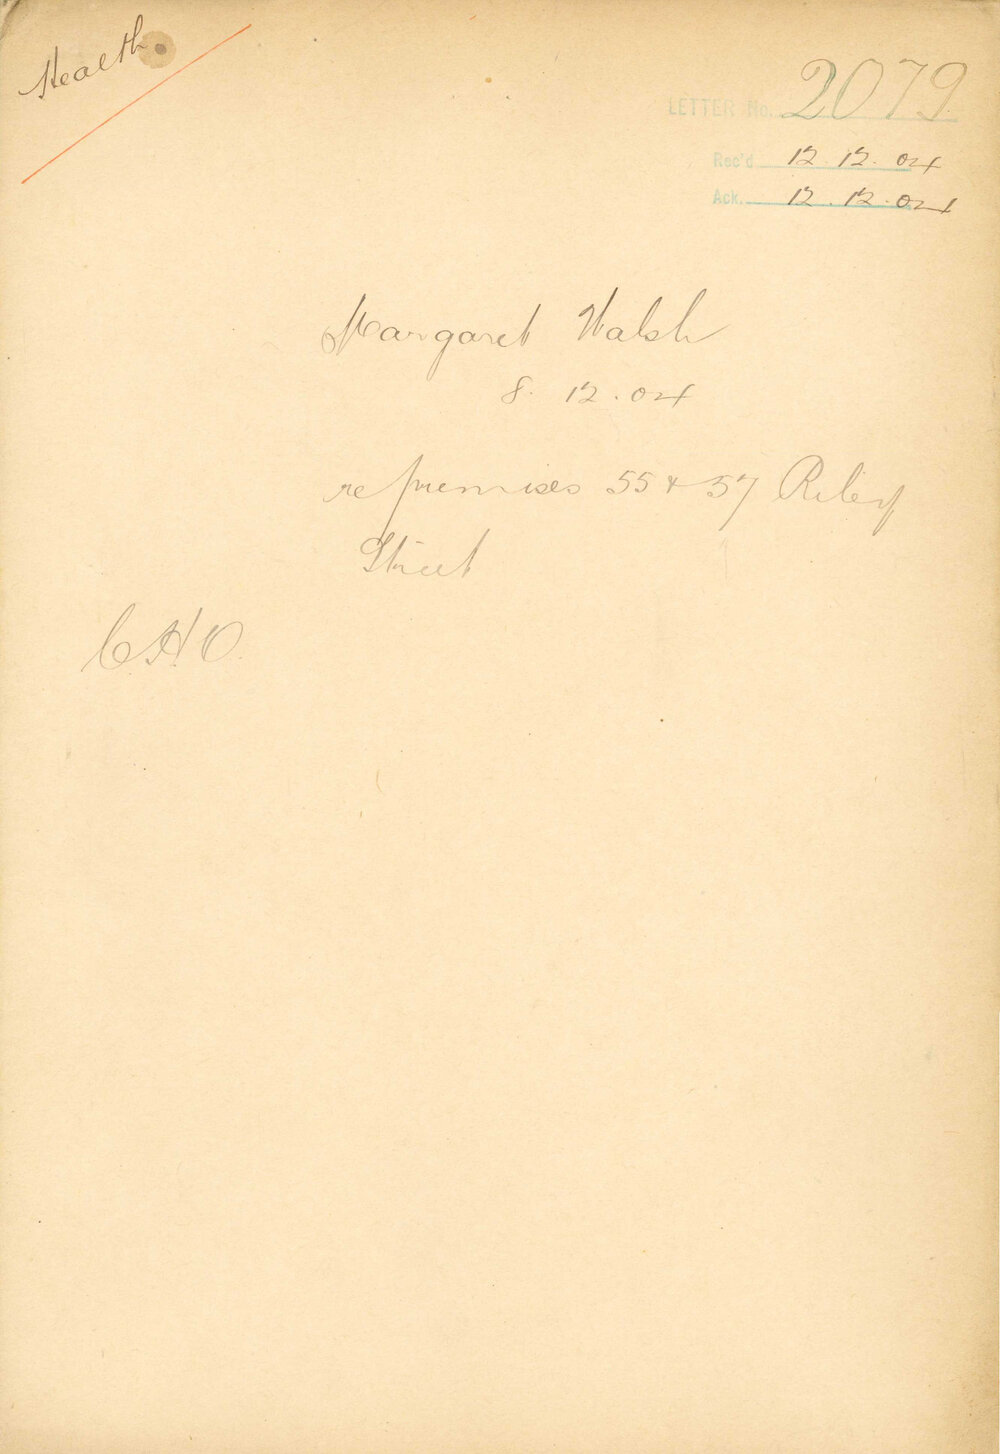 Health
LETTER No. 2079
Rec'd 12.12.04
Ack. 12.12.04
Margaret Walsh
8.12.04
re premises 55 & 57 Riley
Street
C.H.O.